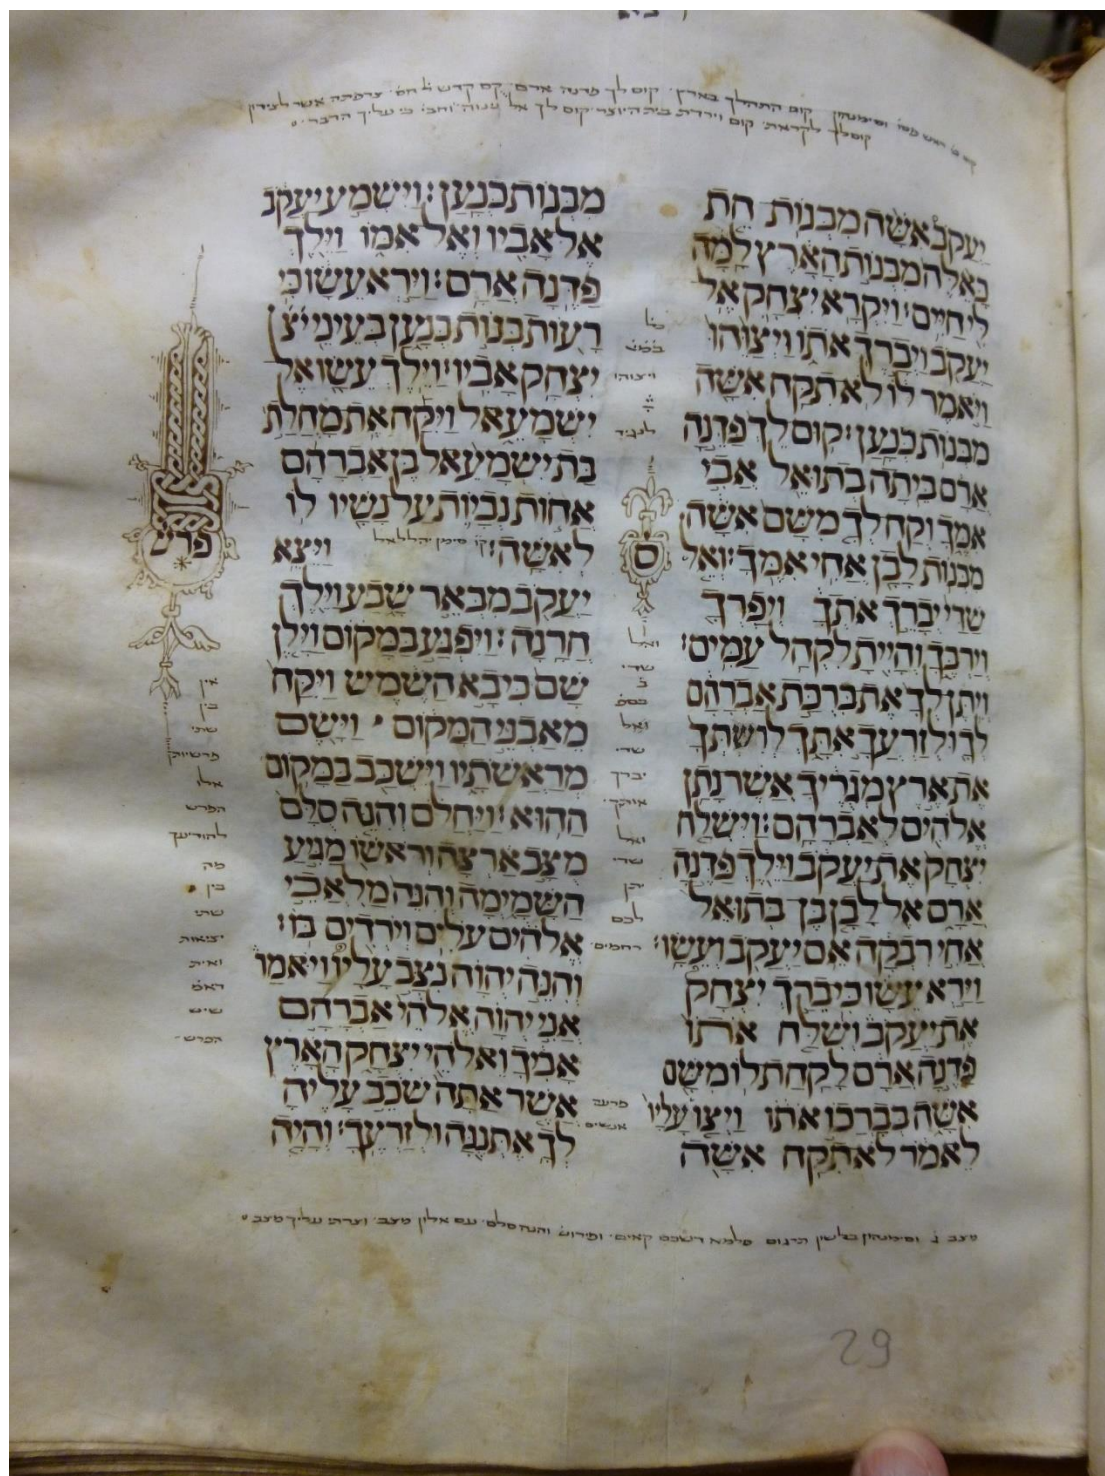 קום התהלך בארץ קום לך פדנה ארם
קום לך לקראת קום וירדת בית היוצר קום לך אל כי עליך הדבר
יעקב אשה מבנות חת
כאלה מבנות הארץ למה
לי חיים׃ ויקרא יצחק אל
יעקב ויברך אתו ויצוהו
ויאמר לו לא תקח אשה
מבנות כנען׃ קום לך פדנה
ארם ביתה בתואל אבי
אמך וקח לך משם אשה
מבנות לבן אחי אמך׃ ואל
שדי יברך אתך ויפרך
וירבך והיית לקהל עמים׃
ויתן לך את ברכת אברהם
לך ולזרעך אתך לרשתך
את ארץ מגריך אשר נתן
אלהים לאברהם׃ וישלח
יצחק את יעקב וילך פדנה
ארם אל לבן בן בתואל
אחי רבקה אם יעקב ועשו׃
וירא עשו כי ברך יצחק
את יעקב ושלח אתו
פדנה ארם לקחת לו משם
אשה בברכו אתו ויצו עליו
לאמר לא תקח אשה
ויצוהו
ס
ואל
שדי
ואל
שדי
יברך
אותך
ואל
שדי
יתן
לכם
רחמים
פרעה
אנשים
מבנות כנען׃ וישמע יעקב
אל אביו ואל אמו וילך
פדנה ארם׃ וירא עשו כי
רעות בנות כנען בעיני יצ
יצחק אביו׃ וילך עשו אל
ישמעאל ויקח את מחלת
בת ישמעאל בן אברהם
אחות נביות על נשיו לו
לאשה׃ סימן ויצא
יעקב מבאר שבע וילך
חרנה׃ ויפגע במקום וילן
שם כי בא השמש ויקח
מאבני המקום וישם
מראשתיו וישכב במקום
ההוא׃ ויחלם והנה סלם
מצב ארצה וראשו מגיע
השמימה והנה מלאכי
אלהים עלים וירדים בו׃
והנה יהוה נצב עליו ויאמר
אני יהוה אלהי אברהם
אביך ואלהי יצחק הארץ
אשר אתה שכב עליה
לך אתננה ולזרעך׃ והיה
פרש
אין
בין
שתי
פרשיות
אלו
הפרש
להודיעך
מה
בין
שתי
יציאות
מצב ג וסימנהון תרגום והנה סלם
29